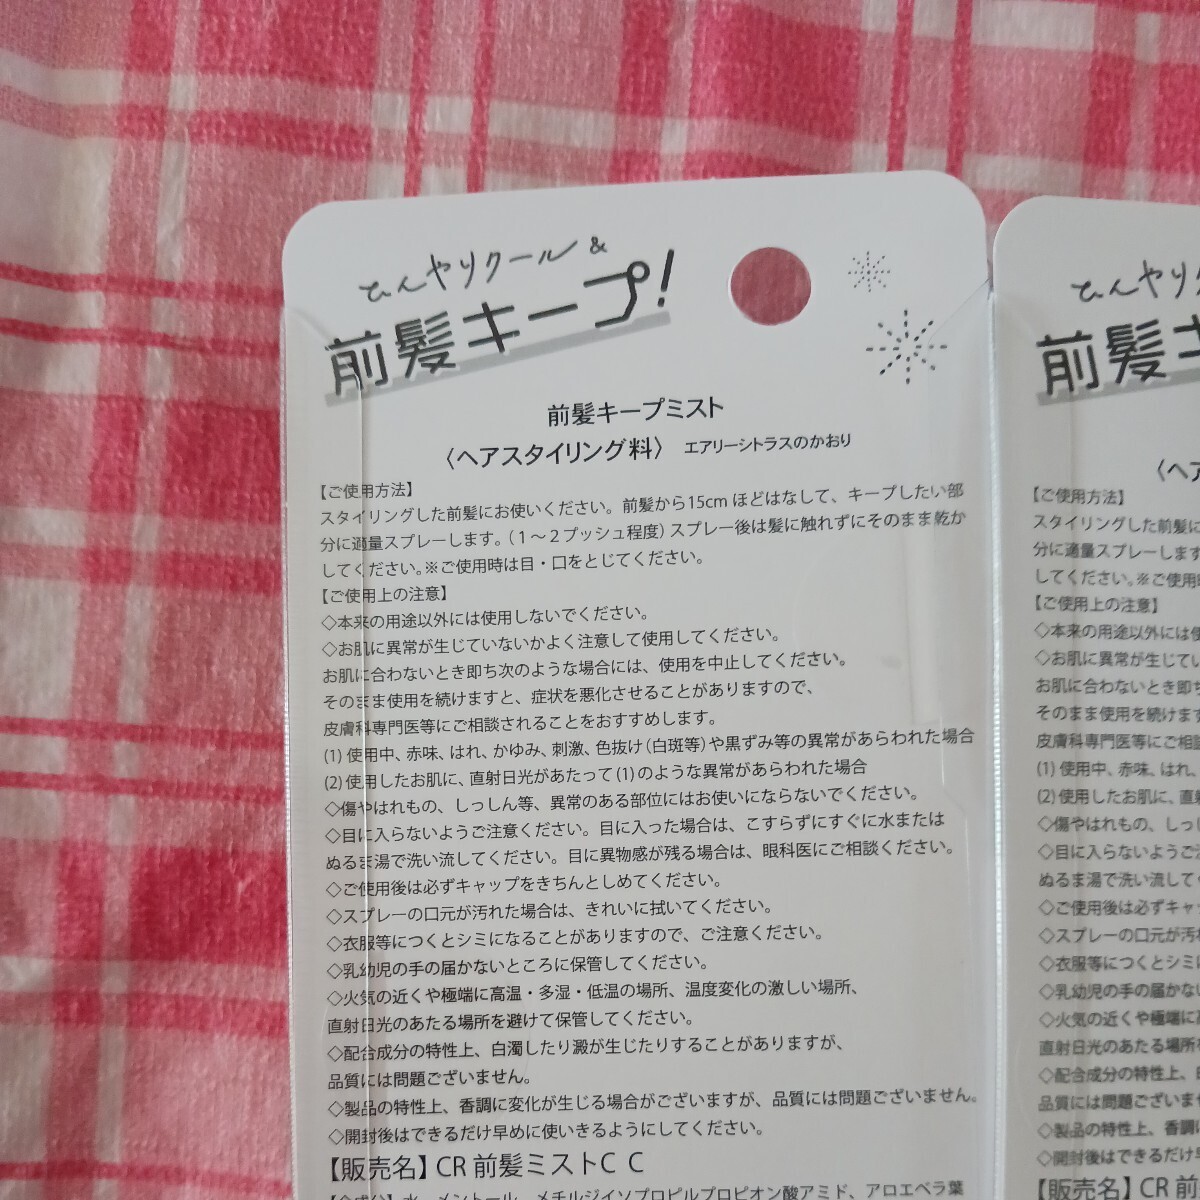 ひんやりクール&
前髪キープ!
前髪キープミスト
〈ヘアスタイリング料〉 エアリーシトラスのかおり
【ご使用方法】
スタイリングした前髪にお使いください。前髪から15cm ほどはなして、キープしたい部
分に適量スプレーします。(1～2プッシュ程度)スプレー後は髪に触れずにそのまま乾か
してください。※ご使用時は目・口をとじてください。
【ご使用上の注意】
◇本来の用途以外には使用しないでください。
◇お肌に異常が生じていないかよく注意して使用してください。
お肌に合わないとき即ち次のような場合には、使用を中止してください。
そのまま使用を続けますと、症状を悪化させることがありますので、
皮膚科専門医等にご相談されることをおすすめします。
(1) 使用中、赤味、はれ、かゆみ、刺激、色抜け(白斑等)や黒ずみ等の異常があらわれた場合
(2) 使用したお肌に、直射日光があたって(1)のような異常があらわれた場合
◇傷やはれもの、しっしん等、異常のある部位にはお使いにならないでください。
◇目に入らないようご注意ください。目に入った場合は、こすらずにすぐに水または
ぬるま湯で洗い流してください。目に異物感が残る場合は、眼科医にご相談ください。
◇ご使用後は必ずキャップをきちんとしめてください。
◇スプレーの口元が汚れた場合は、きれいに拭いてください。
◇衣服等につくとシミになることがありますので、ご注意ください。
◇乳幼児の手の届かないところに保管してください。
◇火気の近くや極端に高温・多湿・低温の場所、温度変化の激しい場所、
直射日光のあたる場所を避けて保管してください。
◇配合成分の特性上、白濁したり澱が生じたりすることがありますが、
品質には問題ございません。
◇製品の特性上、香調に変化が生じる場合がございますが、品質には問題ございません。
◇開封後はできるだけ早めに使いきるようにしてください。
【販売名】CR 前髪ミストC C
【全成分】水、メントール、メチルジイソプロピルプロピオン酸アミド、アロエベラ葉
ひんやりク
前髪キ
〈ヘア
【ご使用方法】
スタイリングした前髪に
分に適量スプレーします
してください。※ご使用時
【ご使用上の注意】
◇本来の用途以外には使
◇お肌に異常が生じてい
お肌に合わないとき即ち
そのまま使用を続けます
皮膚科専門医等にご相談
(1) 使用中、赤味、はれ、
(2) 使用したお肌に、直射
◇傷やはれもの、しっし
◇目に入らないようご注
ぬるま湯で洗い流してく
◇ご使用後は必ずキャッ
◇スプレーの口元が汚れ
◇衣服等につくとシミに
◇乳幼児の手の届かない
◇火気の近くや極端に高
直射日光のあたる場所を
◇配合成分の特性上、白
品質には問題ございませ
◇製品の特性上、香調に
◇開封後はできるだけ早
【販売名】CR 前